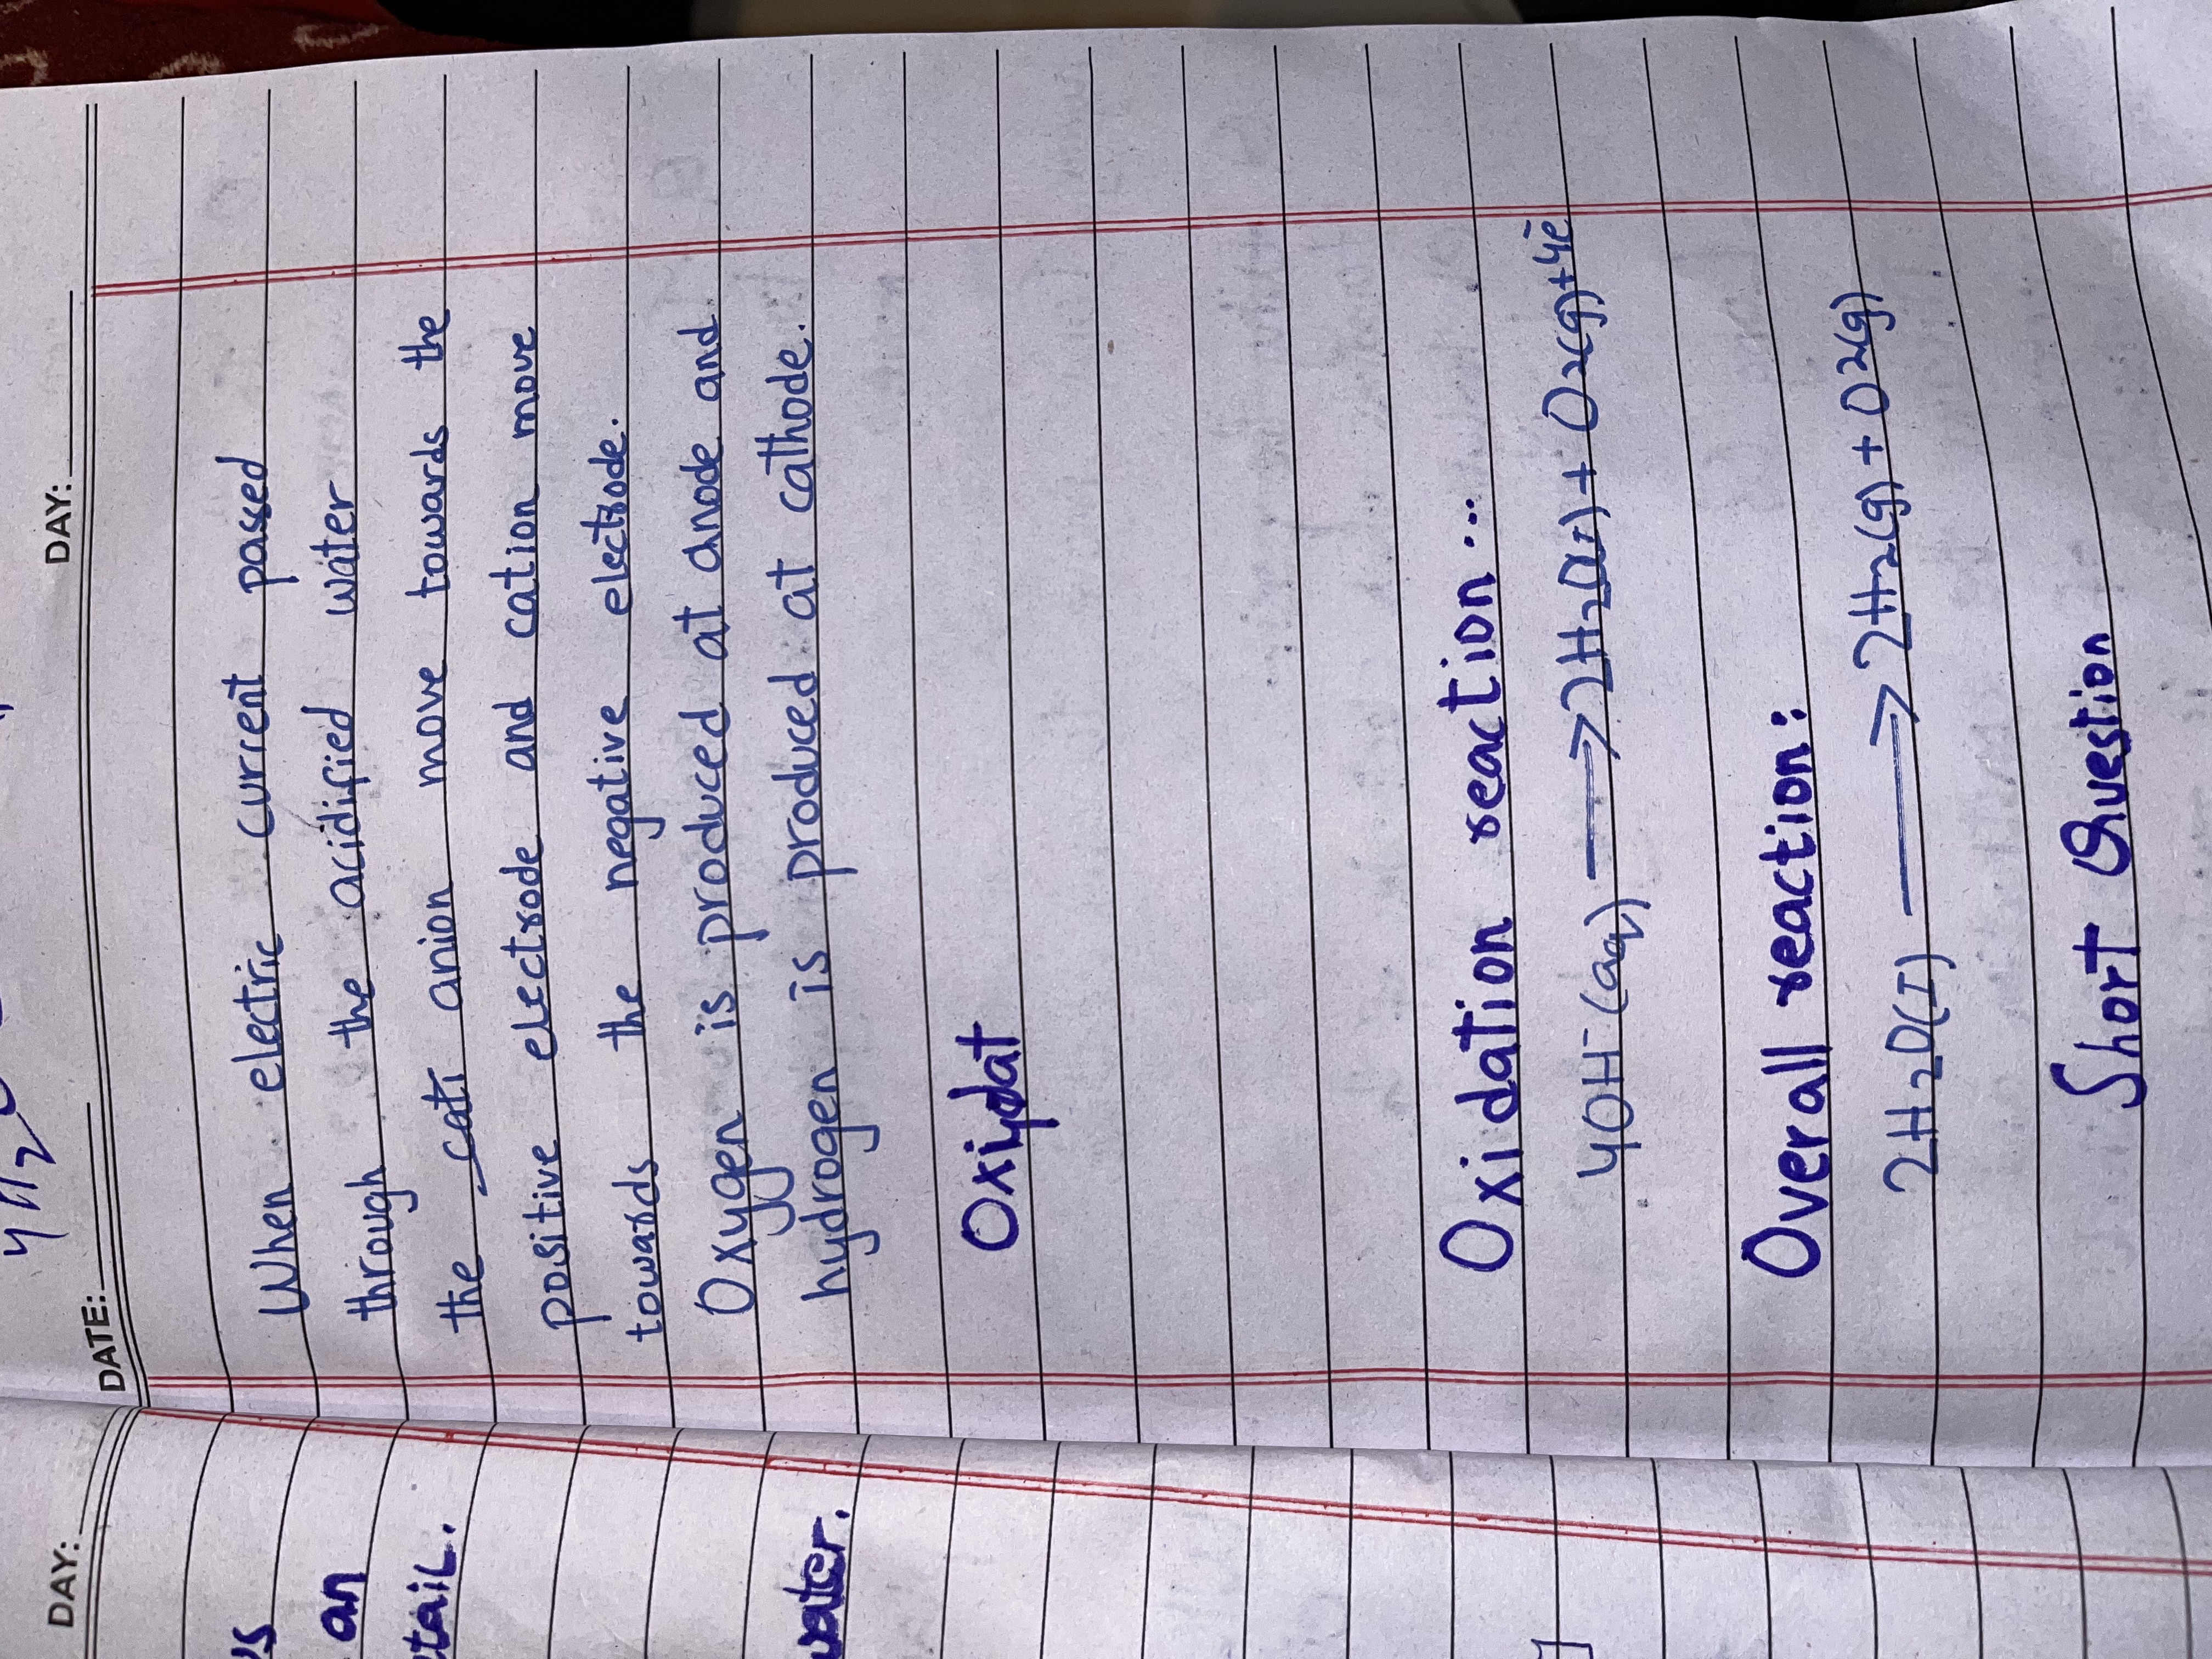 DATE: DAY:
When electric current passed
through the acidified water
the cati anion move towards the
positive electrode and cation move
towards the negative electrode.
Oxygen is produced at anode and
hydrogen is produced at cathode.
Oxiydat
Oxidation reaction...
4OH⁻(aq) ⟶ 2H2O(l) + O2(g)+4e⁻
Overall reaction:
2H2O(l) ⟶ 2H2(g) + O2(g)
Short Question
DAY:
us
an
etail.
water.